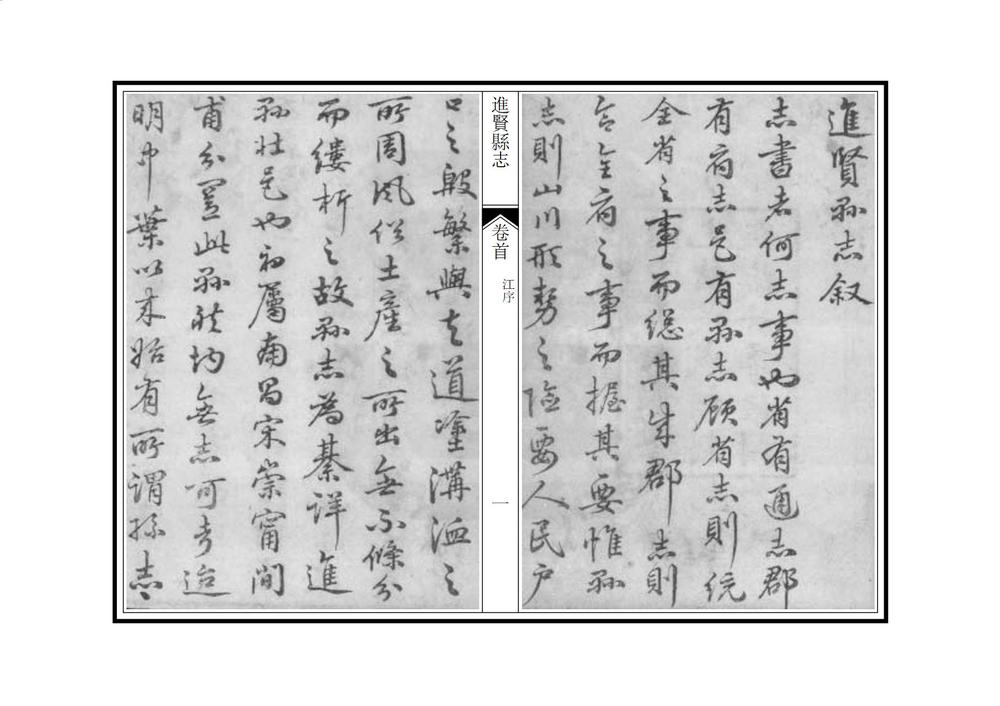 進賢縣志叙
志書者何志事也省有通志郡
有府志邑有縣志顧省志則統
全省之事而總其成郡志則
合全府之事而握其要惟縣
志則山川形勢之險要人民户
進賢縣志
卷首
江序
一
口之殷繁與夫道塗溝洫之
所周風俗土產之所出無不條分
而縷析之故縣志為綦詳進
縣壯邑也初屬南昌宋崇甯間
甫分置此縣然均無志可考迨
明中葉以来始有所謂縣志